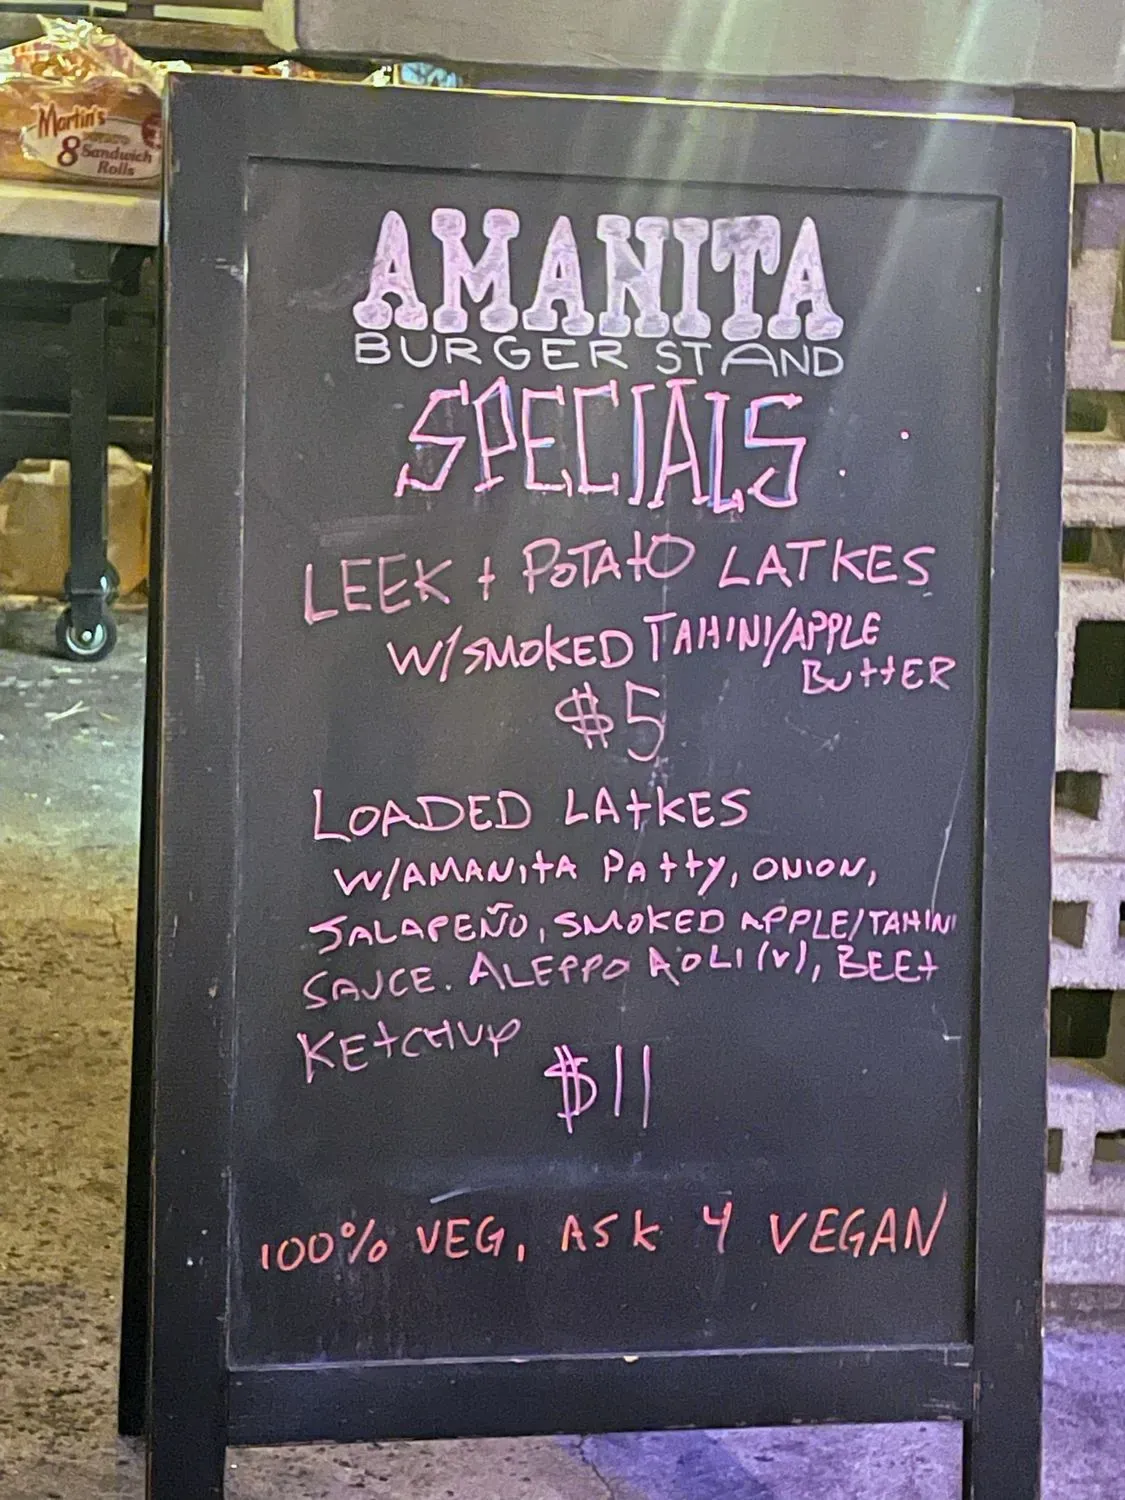 Martin's
8 Sandwich
Rolls
AMANITA
BURGER STAND
SPECIALS
LEEK + POTATO LATKES
W/SMOKED TAHINI/APPLE
BUTTER
$5
LOADED LATKES
W/AMANITA PATTY, ONION,
JALAPEÑO, SMOKED APPLE/TAHINI
SAUCE. ALEPPO AOLI (V), BEET
KETCHUP
$11
100% VEG, ASK 4 VEGAN